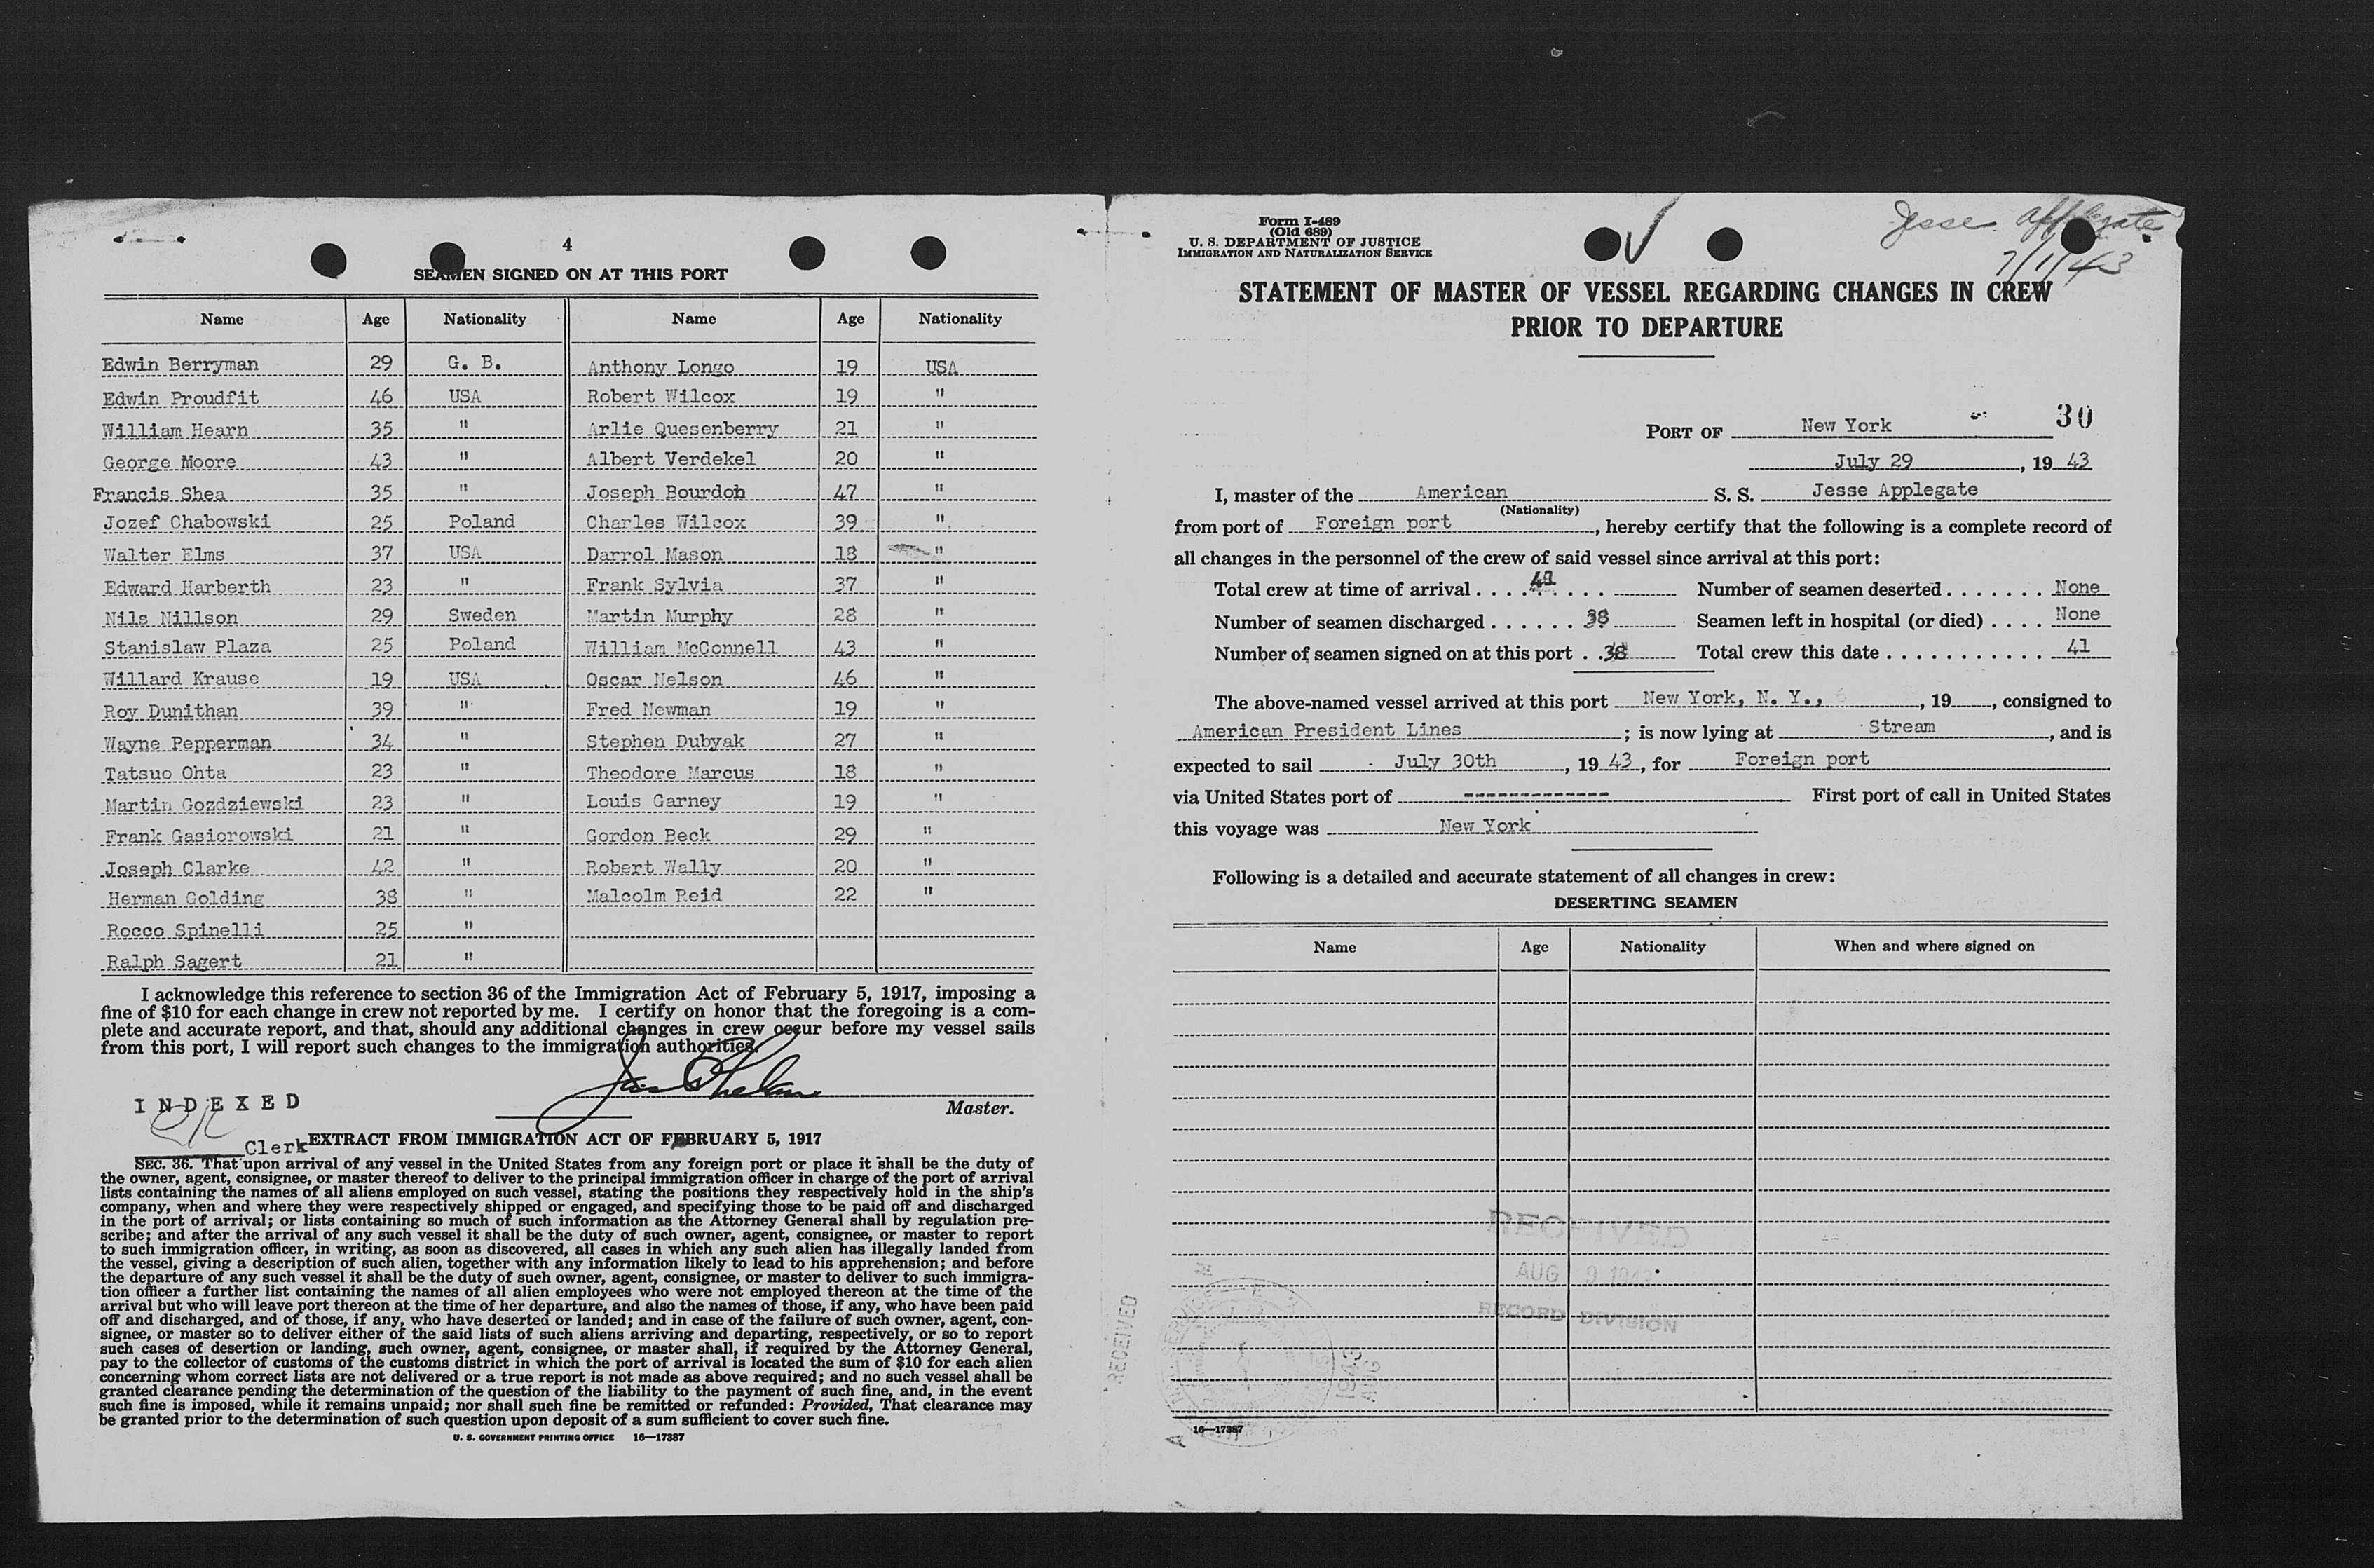 4
SEAMEN SIGNED ON AT THIS PORT
Name Age Nationality Name Age Nationality
Edwin Berryman 29 G. B. Anthony Longo 19 USA
Edwin Proudfit 46 USA Robert Wilcox 19 "
William Hearn 35 " Arlie Quesenberry 21 "
George Moore 43 " Albert Verdekel 20 "
Francis Shea 35 " Joseph Bourdon 47 "
Jozef Chabowski 25 Poland Charles Wilcox 39 "
Walter Elms 37 USA Darrol Mason 18 "
Edward Harberth 23 " Frank Sylvia 37 "
Nils Nillson 29 Sweden Martin Murphy 28 "
Stanislaw Plaza 25 Poland William McConnell 43 "
Willard Krause 19 USA Oscar Nelson 46 "
Roy Dunithan 39 " Fred Newman 19 "
Wayne Pepperman 34 " Stephen Dubyak 27 "
Tatsuo Ohta 23 " Theodore Marcus 18 "
Martin Gozdziewski 23 " Louis Garney 19 "
Frank Gasiorowski 21 " Gordon Beck 29 "
Joseph Clarke 42 " Robert Wally 20 "
Herman Golding 38 " Malcolm Reid 22 "
Rocco Spinelli 25 "
Ralph Sagert 21 "
I acknowledge this reference to section 36 of the Immigration Act of February 5, 1917, imposing a
fine of $10 for each change in crew not reported by me. I certify on honor that the foregoing is a com-
plete and accurate report, and that, should any additional changes in crew occur before my vessel sails
from this port, I will report such changes to the immigration authorities.
Master.
INDEXED
Clerk
EXTRACT FROM IMMIGRATION ACT OF FEBRUARY 5, 1917
SEC. 36. That upon arrival of any vessel in the United States from any foreign port or place it shall be the duty of
the owner, agent, consignee, or master thereof to deliver to the principal immigration officer in charge of the port of arrival
lists containing the names of all aliens employed on such vessel, stating the positions they respectively hold in the ship's
company, when and where they were respectively shipped or engaged, and specifying those to be paid off and discharged
in the port of arrival; or lists containing so much of such information as the Attorney General shall by regulation pre-
scribe; and after the arrival of any such vessel it shall be the duty of such owner, agent, consignee, or master to report
to such immigration officer, in writing, as soon as discovered, all cases in which any such alien has illegally landed from
the vessel, giving a description of such alien, together with any information likely to lead to his apprehension; and before
the departure of any such vessel it shall be the duty of such owner, agent, consignee, or master to deliver to such immigra-
tion officer a further list containing the names of all alien employees who were not employed thereon at the time of the
arrival but who will leave port thereon at the time of her departure, and also the names of those, if any, who have been paid
off and discharged, and of those, if any, who have deserted or landed; and in case of the failure of such owner, agent, con-
signee, or master so to deliver either of the said lists of such aliens arriving and departing, respectively, or so to report
such cases of desertion or landing, such owner, agent, consignee, or master shall, if required by the Attorney General,
pay to the collector of customs of the customs district in which the port of arrival is located the sum of $10 for each alien
concerning whom correct lists are not delivered or a true report is not made as above required; and no such vessel shall be
granted clearance pending the determination of the question of the liability to the payment of such fine, and, in the event
such fine is imposed, while it remains unpaid; nor shall such fine be remitted or refunded: Provided, That clearance may
be granted prior to the determination of such question upon deposit of a sum sufficient to cover such fine.
U. S. GOVERNMENT PRINTING OFFICE 16—17387
Form I-489
(Old 689)
U. S. DEPARTMENT OF JUSTICE
IMMIGRATION AND NATURALIZATION SERVICE
Jesse Applegate
7/1/43
STATEMENT OF MASTER OF VESSEL REGARDING CHANGES IN CREW
PRIOR TO DEPARTURE
PORT OF New York 30
July 29, 1943
I, master of the American S. S. Jesse Applegate
(Nationality)
from port of Foreign port, hereby certify that the following is a complete record of
all changes in the personnel of the crew of said vessel since arrival at this port:
Total crew at time of arrival 41 Number of seamen deserted None
Number of seamen discharged 38 Seamen left in hospital (or died) None
Number of seamen signed on at this port 38 Total crew this date 41
The above-named vessel arrived at this port New York, N. Y., , 19 , consigned to
American President Lines ; is now lying at Stream, and is
expected to sail July 30th, 1943, for Foreign port
via United States port of ------------- First port of call in United States
this voyage was New York
Following is a detailed and accurate statement of all changes in crew:
DESERTING SEAMEN
Name Age Nationality When and where signed on
RECEIVED
AUG 9 1943
RECORD DIVISION
RECEIVED
1943
AUG
16—17387